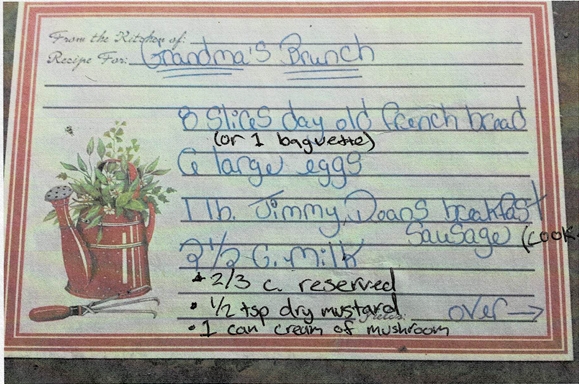 From the Kitchen of:
Recipe For: Grandma's Brunch
8 slices day old french bread
(or 1 baguette)
6 large eggs
1 lb. Jimmy Deans breakfast
Sausage (cook
2 1/2 C. Milk
+ 2/3 c. reserved
• 1/2 tsp dry mustard
over →
• 1 can cream of mushroom